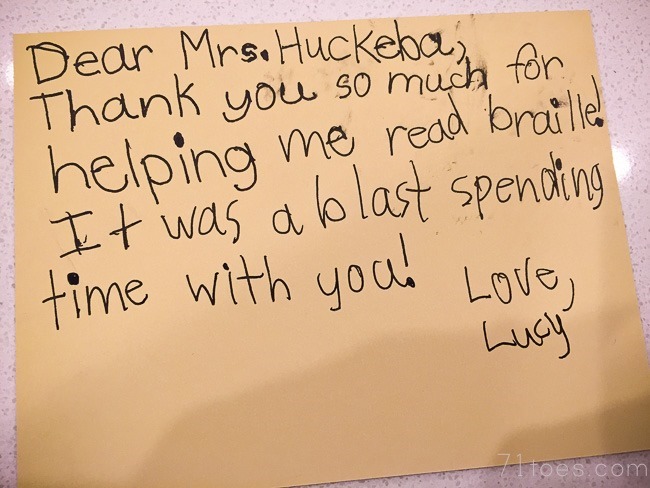 Dear Mrs. Huckeba,
Thank you so much for
helping me read braille!
It was a blast spending
time with you!
Love,
Lucy
71toes.com